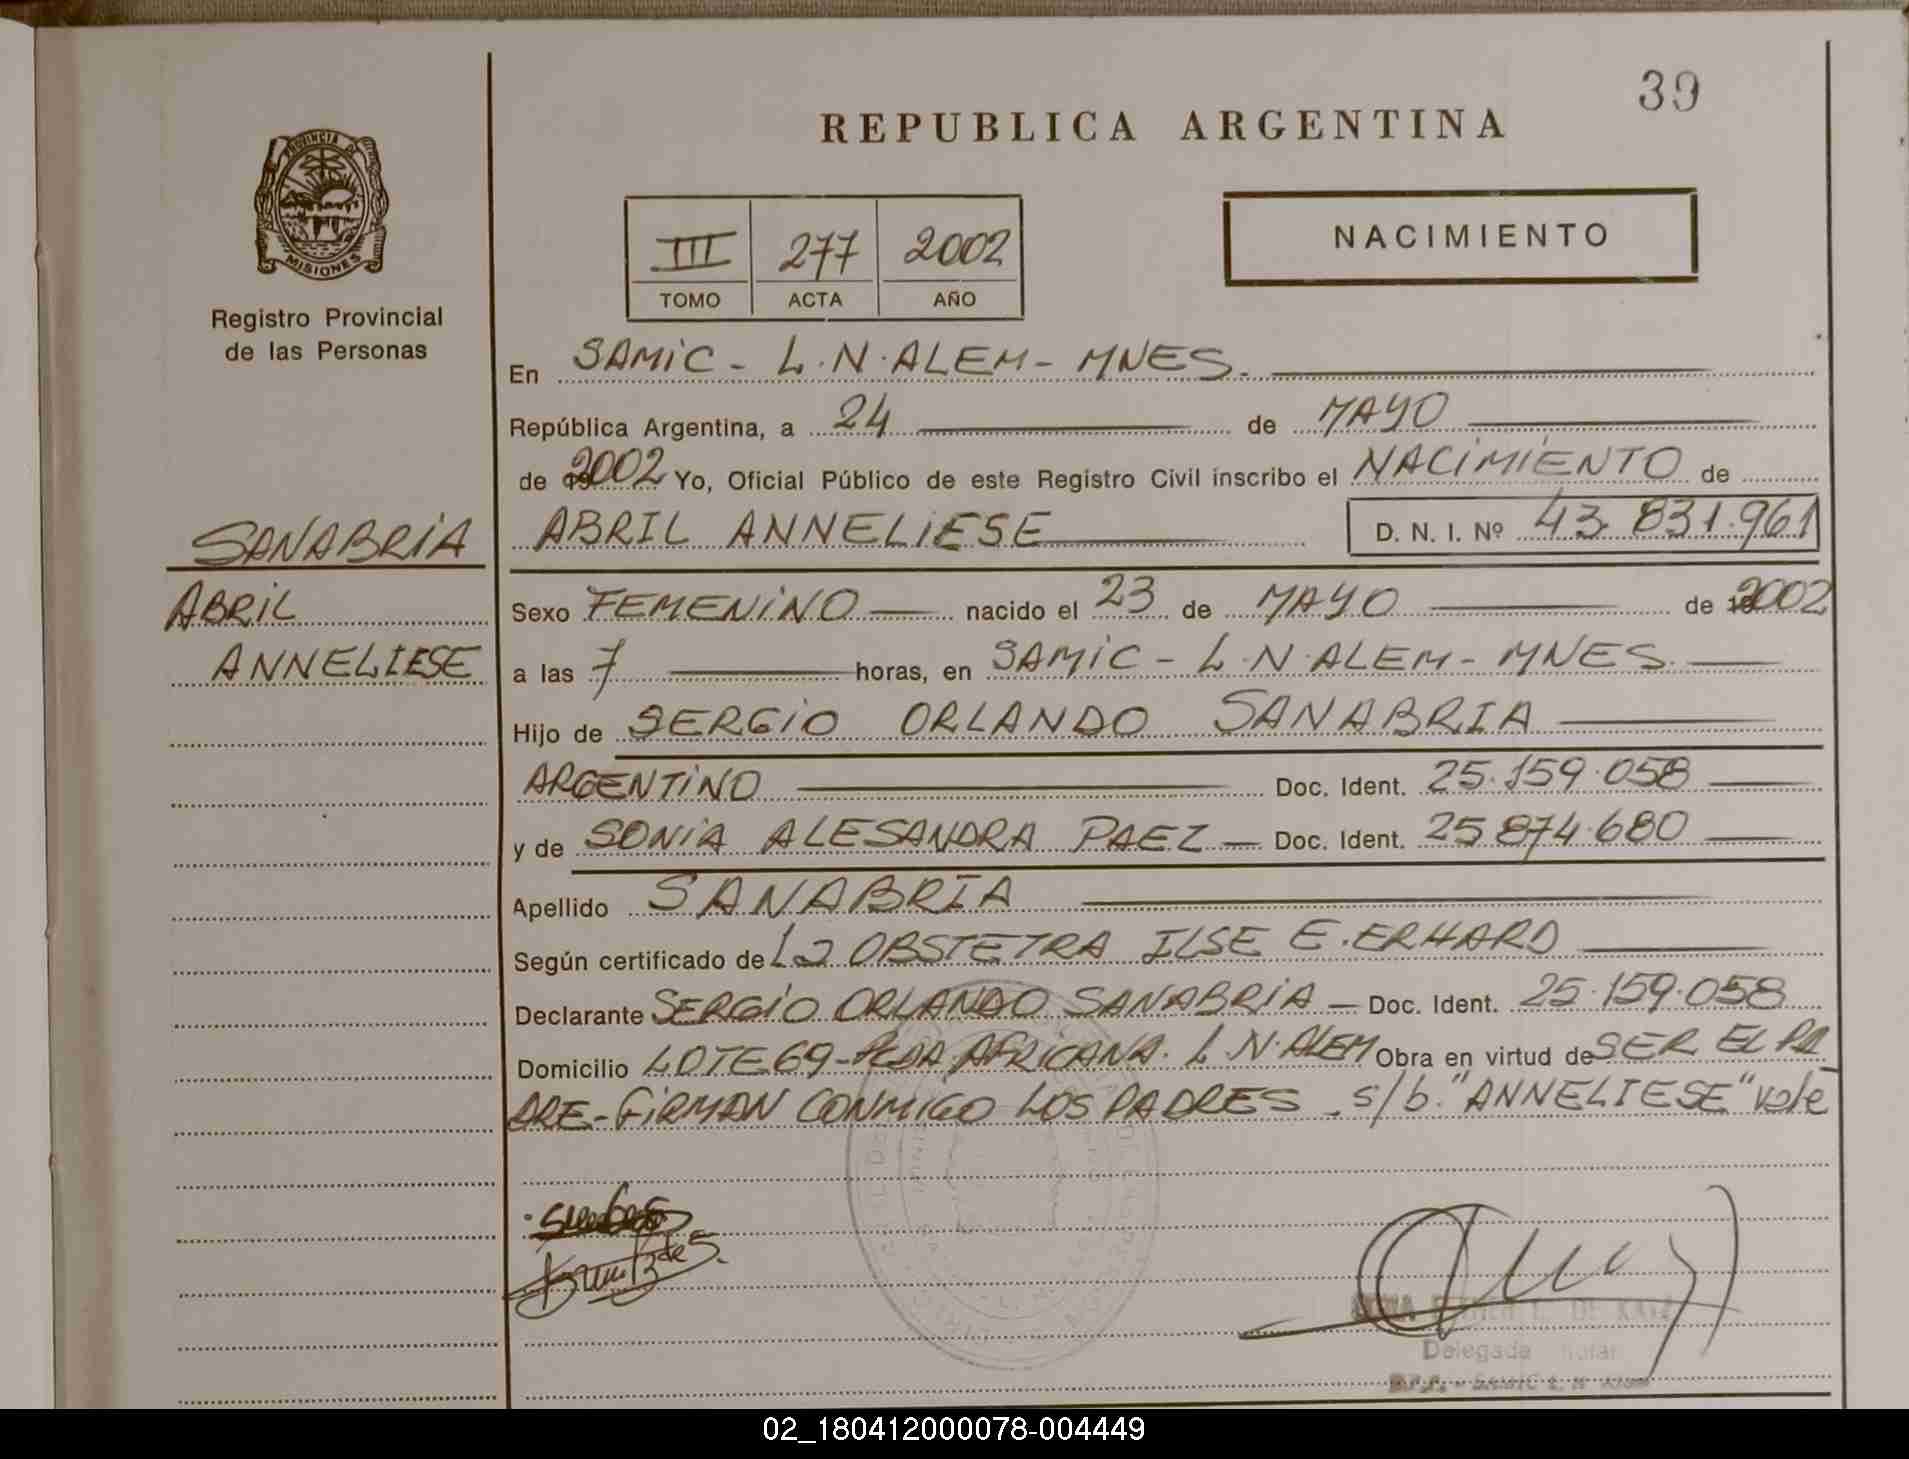 39
REPUBLICA ARGENTINA
PROVINCIA DE
MISIONES
Registro Provincial
de las Personas
III 277 2002
TOMO ACTA AÑO
NACIMIENTO
En SAMIC - L.N.ALEM - MNES.
República Argentina, a 24 de MAYO
de 2002 Yo, Oficial Público de este Registro Civil inscribo el NACIMIENTO de
SANABRIA
ABRIL
ANNELIESE
ABRIL ANNELIESE D. N. I. Nº 43.831.961
Sexo FEMENINO nacido el 23 de MAYO de 2002
a las 7 horas, en SAMIC - L.N.ALEM - MNES.
Hijo de SERGIO ORLANDO SANABRIA
ARGENTINO Doc. Ident. 25.159.058
y de SONIA ALESANDRA PAEZ Doc. Ident. 25.874.680
Apellido SANABRIA
Según certificado de La OBSTETRA ILSE E. ERHARD
Declarante SERGIO ORLANDO SANABRIA Doc. Ident. 25.159.058
Domicilio LOTE 69 - PCDA AFRICANA. L.N.ALEM Obra en virtud de SER EL PA
DRE - FIRMAN CONMIGO LOS PADRES. s/b. "ANNELIESE" vale
DE KATZ
Delegada
02_180412000078-004449